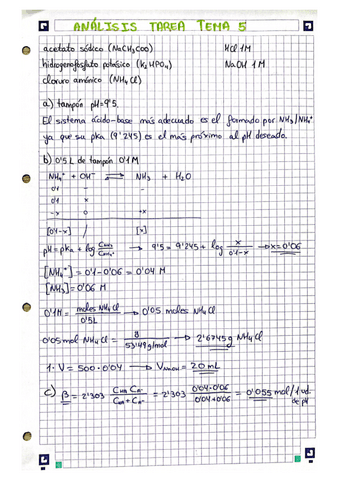 ANÁLISIS TAREA TEMA 5
acetato sódico (NaCH₃COO) HCl 1M
hidrogenofosfato potásico (K₂HPO₄) NaOH 1M
cloruro amónico (NH₄Cl)
a) tampón pH=9'5.
El sistema ácido-base más adecuado es el formado por NH₃/NH₄⁺
ya que su pka (9'245) es el más próximo al pH deseado.
b) 0'5 L de tampón 0'1M
NH₄⁺ + OH⁻ ⇌ NH₃ + H₂O
0'1 - -
0'1 x -
-x 0 +x
[0'1-x] / [x]
pH = pka + log C_NH₃/C_NH₄⁺ → 9'5 = 9'245 + log x/0'1-x → x=0'06
[NH₄⁺] = 0'1-0'06 = 0'04 M
[NH₃] = 0'06 M
0'1M = moles NH₄Cl/0'5L → 0'05 moles NH₄Cl
0'05 mol NH₄Cl = g/53'49 g/mol → 2'6745g NH₄Cl
1·V = 500·0'04 → V_NaOH = 20 mL
c) β = 2'303 C_HA C_A⁻/C_HA + C_A⁻ = 2'303 0'04·0'06/0'04+0'06 = 0'055 mol/1 ud. de pH